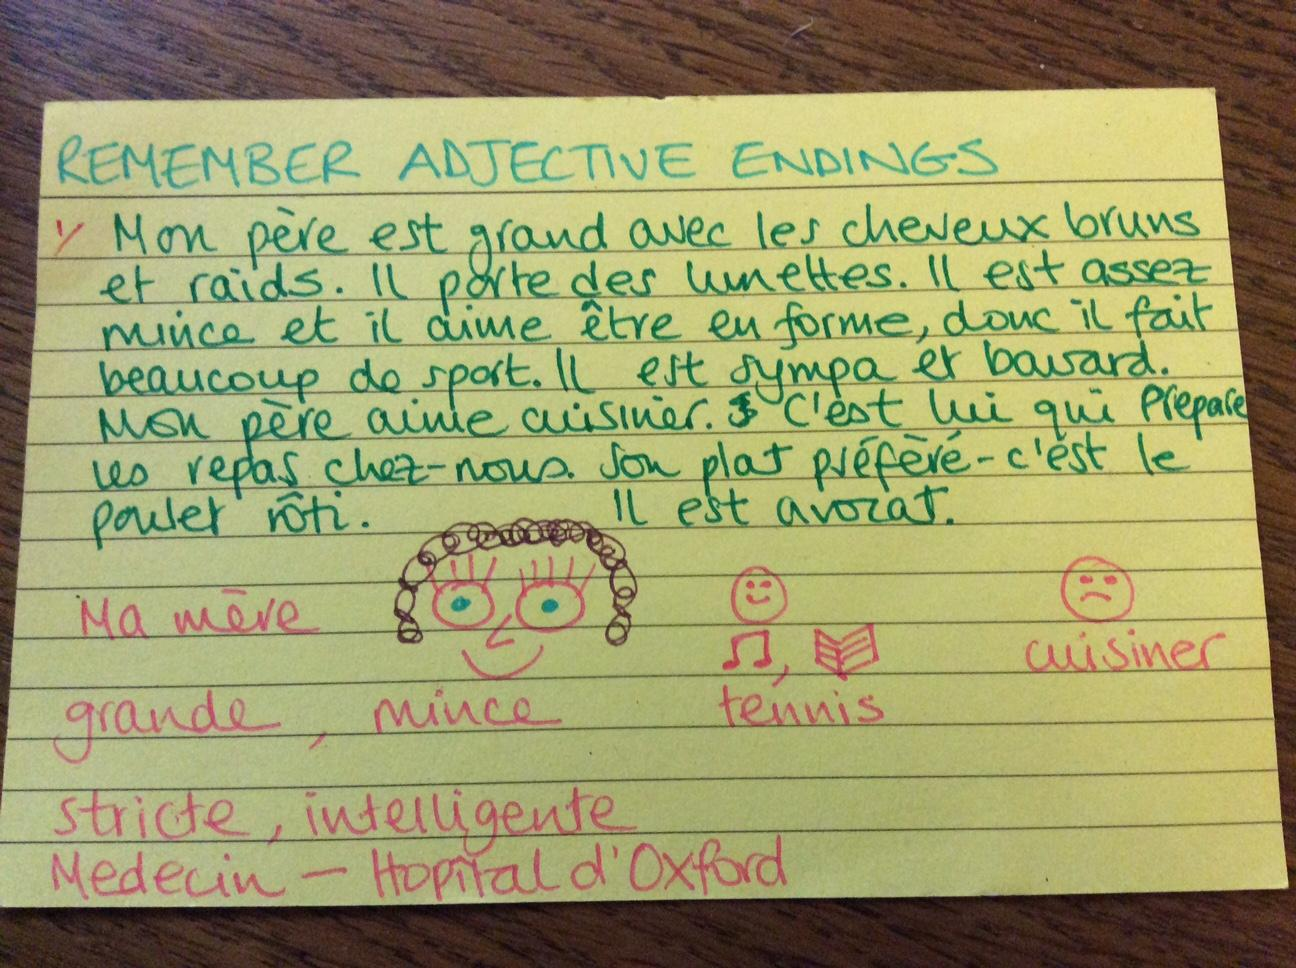 REMEMBER ADJECTIVE ENDINGS
1/ Mon père est grand avec les cheveux bruns
et raids. Il porte des lunettes. Il est assez
mince et il aime être en forme, donc il fait
beaucoup de sport. Il est sympa et bavard.
Mon père aime cuisiner. C'est lui qui prepare
les repas chez-nous. Son plat préfèré - c'est le
poulet rôti. Il est avocat.
Ma mère
cuisiner
grande, mince
tennis
stricte, intelligente
Medecin - Hopîtal d'Oxford